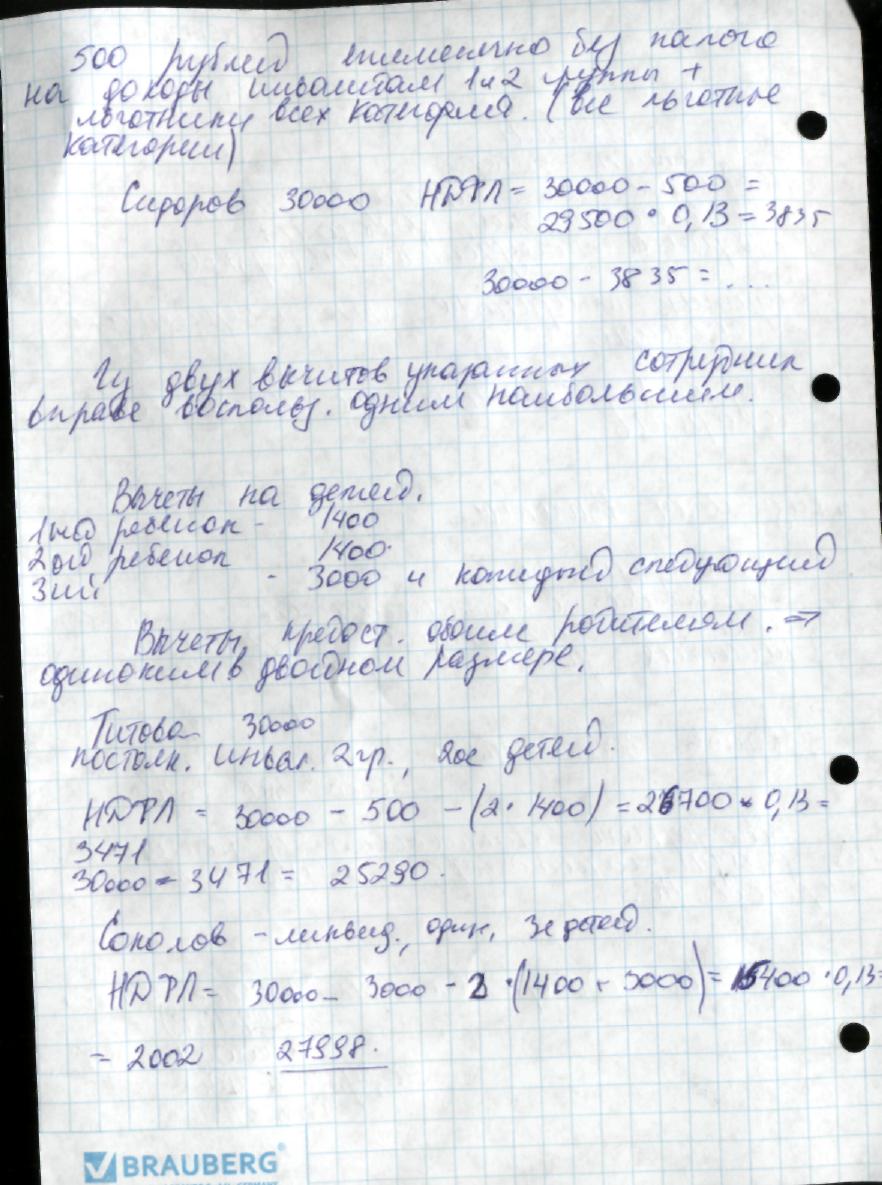 500 рублей ежемесячно без налога
на доходы инвалидам 1 и 2 группы +
льготники всех категорий. (все льготные
категории)
Сидоров 30000 НДФЛ = 30000 - 500 =
29500 · 0,13 = 3835
30000 - 3835 = ...
Из двух вычитов указанных сотрудник
вправе воспольз. одним наибольшим.
Вычеты на детей.
1ый ребенок - 1400
2ой ребенок 1400
3ий - 3000 и каждый следующий
Вычеты предост. обоим родителям. ⇒
одиноким в двойном размере.
Титова 30000
инвал. 2гр., 2ое детей.
НДФЛ = 30000 - 500 - (2 · 1400) = 26700 · 0,13 =
3471
30000 - 3471 = 25290.
Соколов - ликвид., один, 3е детей.
НДФЛ = 30000 - 3000 - 2 · (1400 + 3000) = 15400 · 0,13=
= 2002 27998.
BRAUBERG